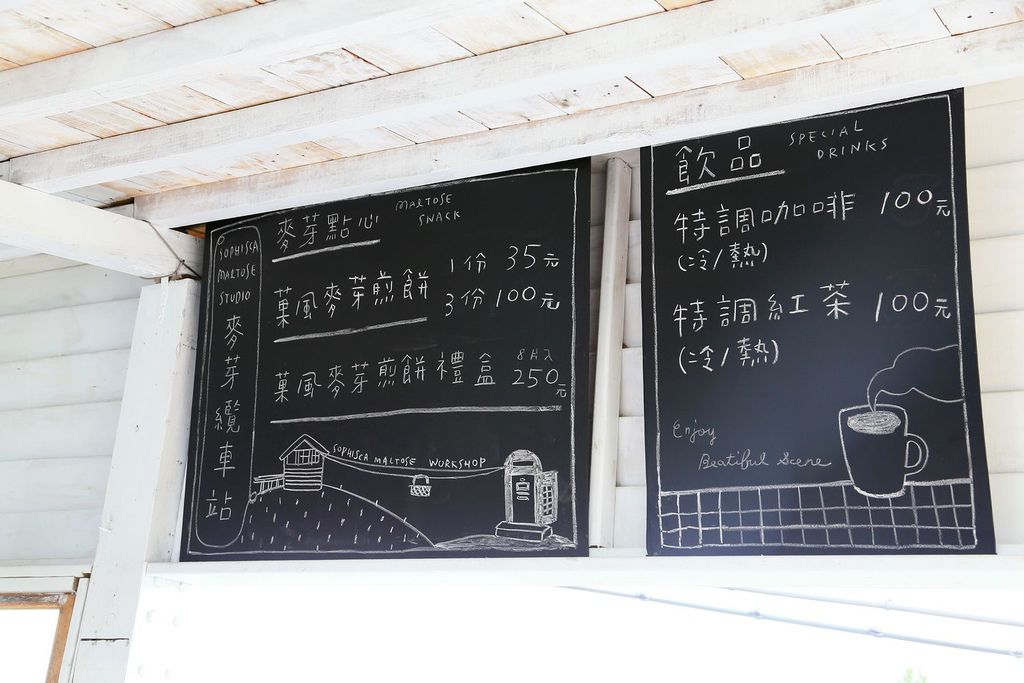 SOPHISCA
MALTOSE
STUDIO
麥芽纜車站
麥芽點心
MALTOSE
SNACK
菓風麥芽煎餅
1份 35元
3份 100元
菓風麥芽煎餅禮盒 8片入 250元
SOPHISCA MALTOSE WORKSHOP
飲品
SPECIAL
DRINKS
特調咖啡 100元
(冷/熱)
特調紅茶 100元
(冷/熱)
Enjoy
Beatiful Scene